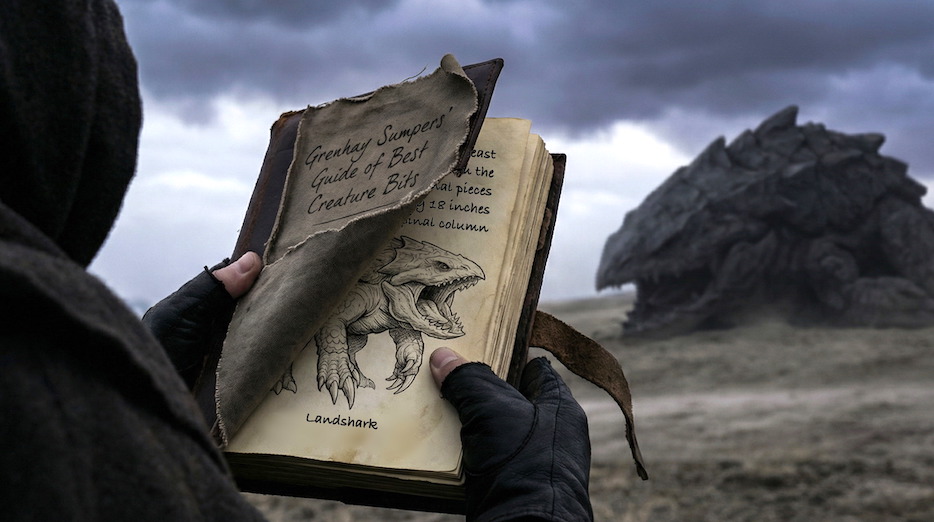 Grenhay Sumpers'
Guide of Best
Creature Bits
the
pieces
18 inches
column
Landshark